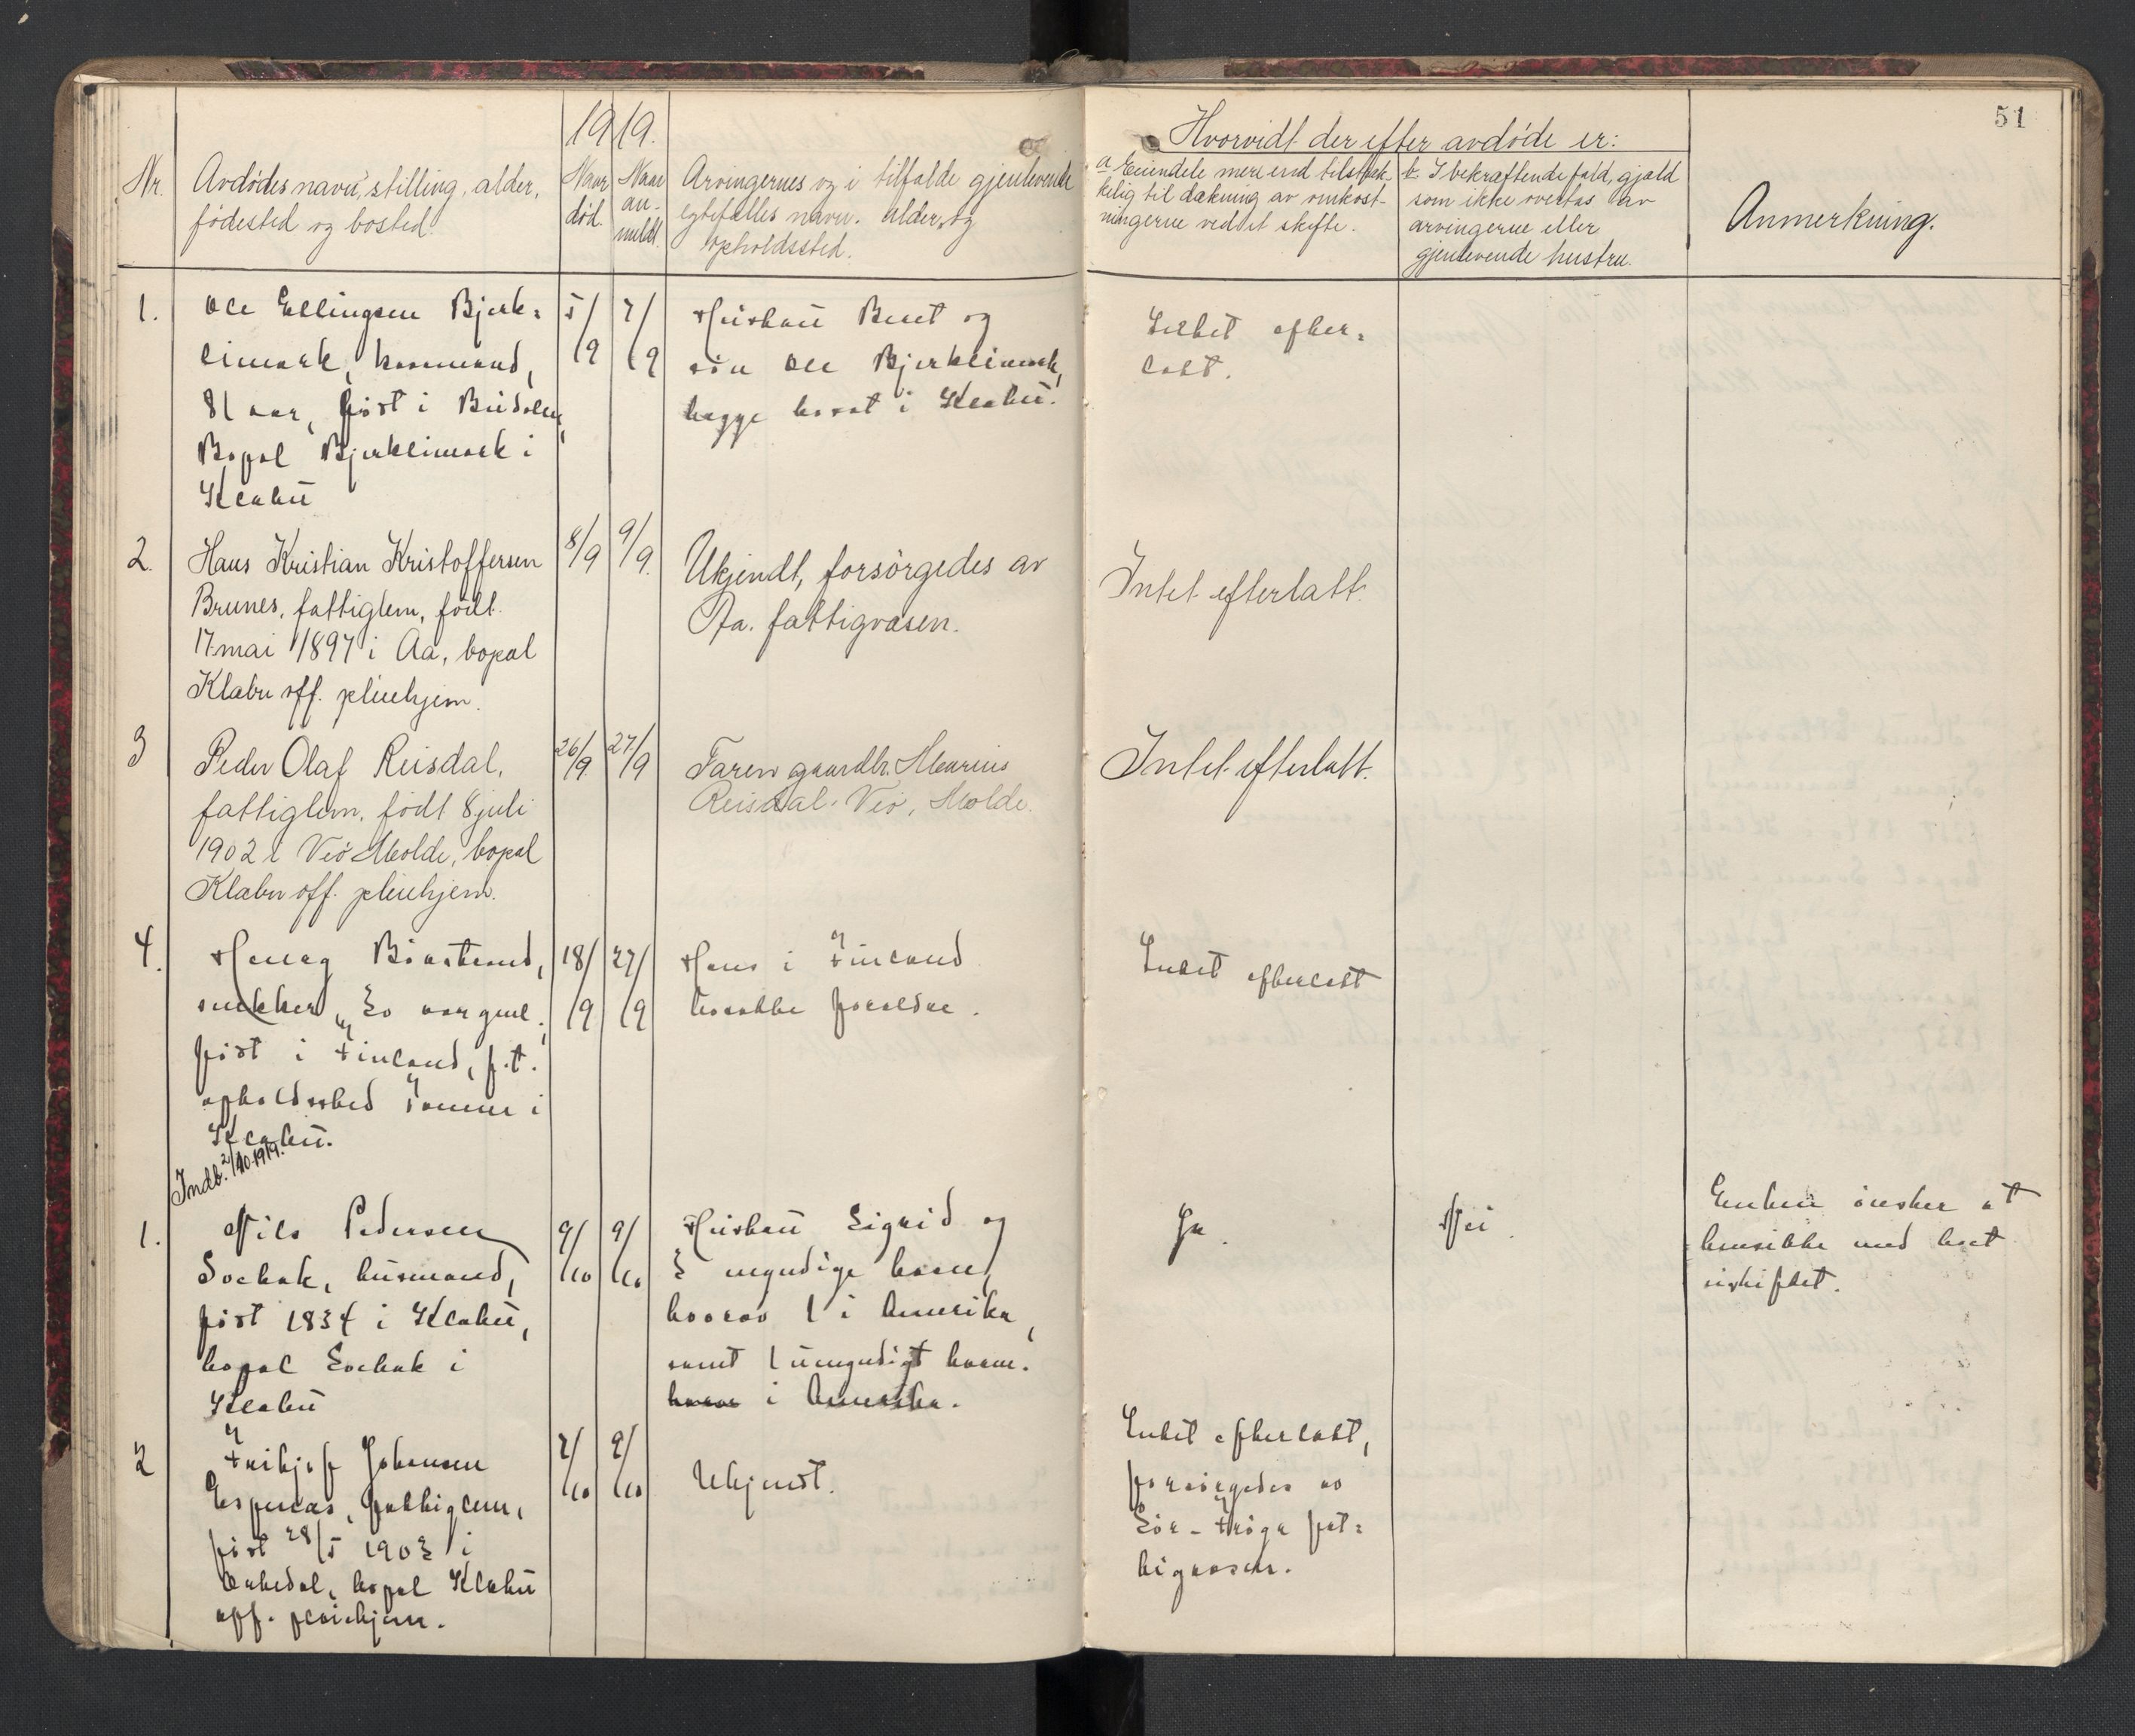 51
1919.
Nr.
Avdödes navn, stilling, alder,
födested og bosted.
Naar
död.
Naar
an-
meldt.
Arvingernes og i tilfælde gjenlevende
egtefælles navn. alder, og
opholdssted.
Hvorvidt der efter avdöde er:
a. Eiendele mere end tilstræk-
kelig til dækning av omkost-
ningerne ved et skifte.
b. I bekræftende fald, gjæld
som ikke overtas av
arvingerne eller
gjenlevende hustru.
Anmerkning.
1.
Ole Ellingsen Bjerk-
limark, kaarmand,
81 aar, föst i Budalen,
Bopæl Bjerklimark i
Klæbu
5/9
7/9
Hustru Beret og
sön Ole Bjerklimark,
begge bosat i Klæbu.
Intet efter-
latt.
2.
Hans Kristian Kristoffersen
Brunes, fattiglem, födt
17 mai 1897 i Aa, bopæl
Klæbu off. pleiehjem.
8/9
9/9.
Ukjendt, forsörgedes av
Aa. fattigvæsen.
Intet efterlatt.
3
Peder Olaf Reisdal,
fattiglem, födt 8 juli
1902 i Veö Molde, bopæl
Klæbu off. pleiehjem.
26/9.
27/9
Faren gaardbr. Marius
Reisdal. Veö, Molde.
Intet efterlatt.
4.
snekker, 30 aar gml.,
föst i Finland, p.t.
opholdssted i
Klæbu.
18/9
27/9
Hans i Finland
bosatte forældre.
Intet efterlatt
Indb. 2/10 1919.
1.
Nils Pedersen
husmand,
föst 1834 i Klæbu,
bopæl i
Klæbu
9/10
9/10
Hustru Sigrid og
3 myndige barn,
hvorav 1 i Amerika,
samt 1 umyndigt barn.
i Amerika.
Ja.
Nei.
Enken önsker at
hensitte med boet
uskiftet.
2
Fritjof Johansen
Espenes, fattiglem,
föst 28/5 1903 i
bopæl Klæbu
off. pleiehjem.
7/10
9/10
Ukjendt.
Intet efterlatt,
forsörgedes av
Sör-Fröya fat-
tigvæsen.